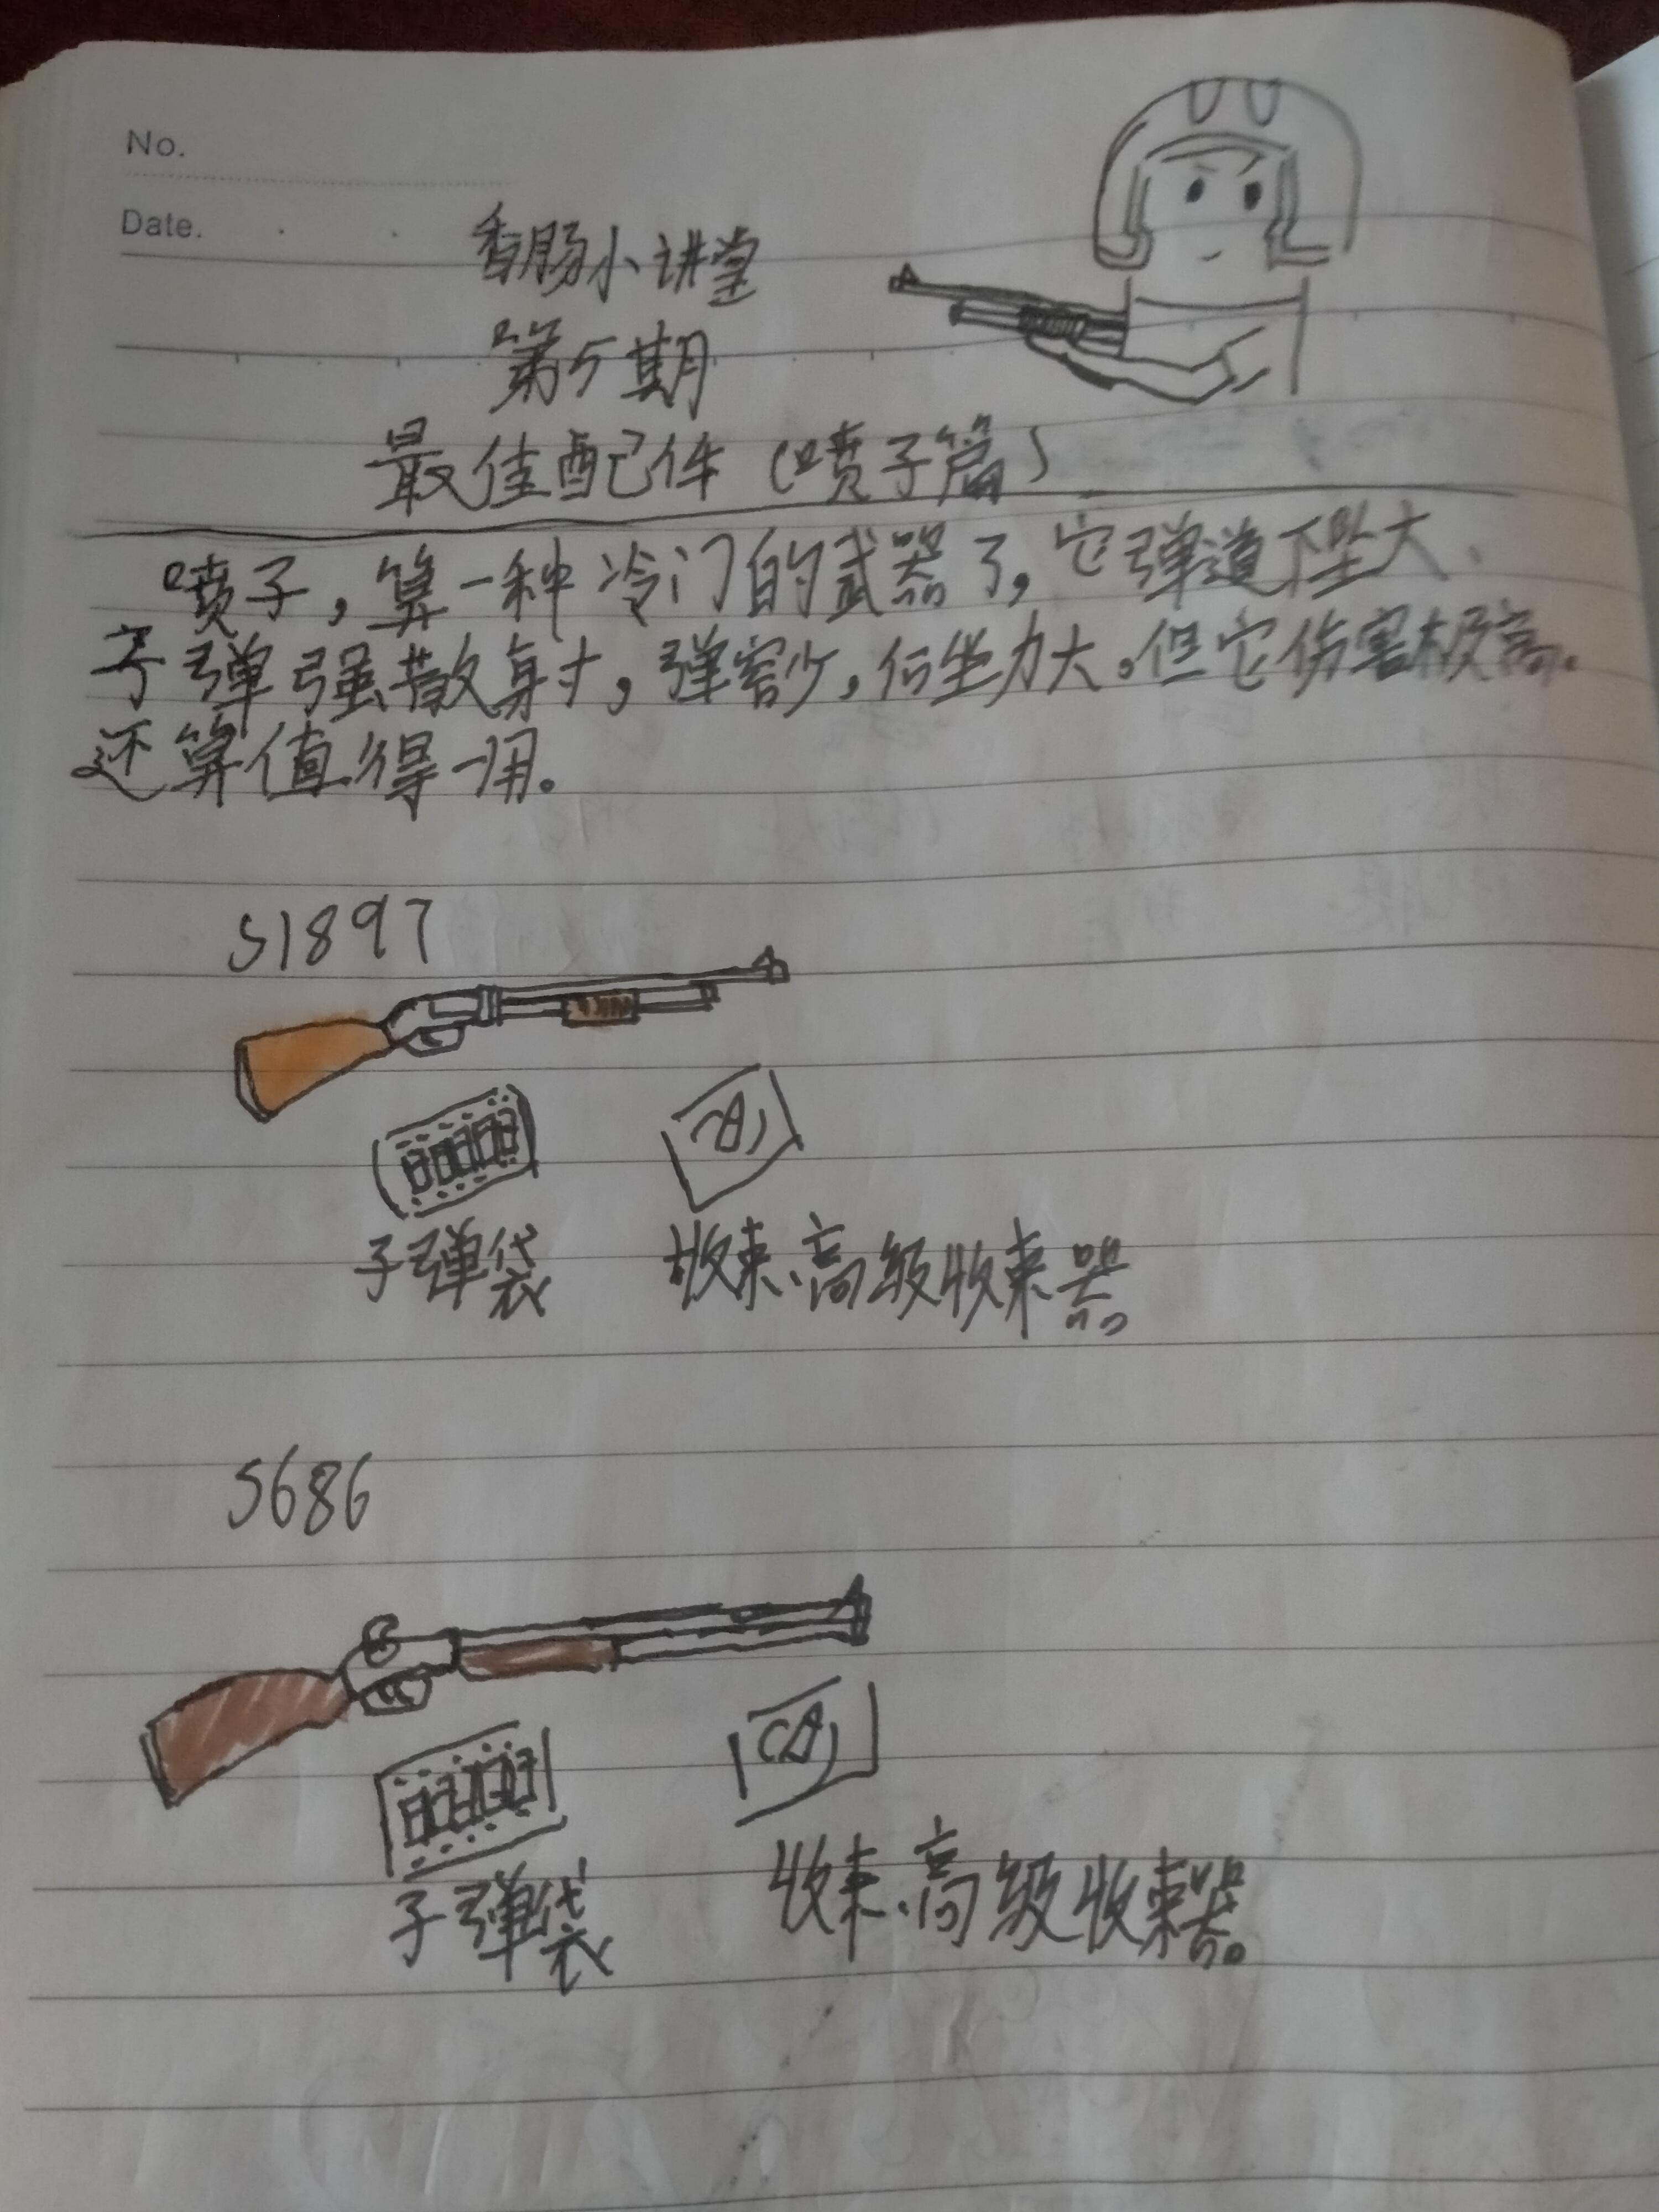 No.
Date.
香肠小讲堂
第5期
最佳配件(喷子篇)
喷子,算一种冷门的武器了,它弹道下坠大、
子弹强散射,弹容少,后坐力大。但它伤害极高。
还算值得一用。
S1897
子弹袋 收束、高级收束器
S686
子弹袋 收束、高级收束器。